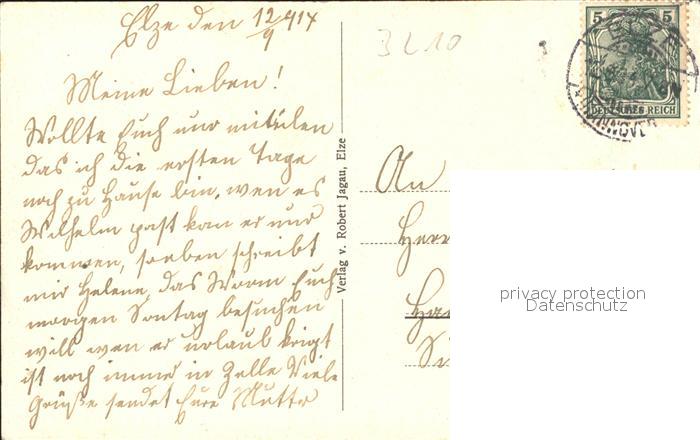 Elze den 12/9 914
3 L 10
Meine Lieben!
Wollte Euch nur mitteilen
das ich die ersten Tage
noch zu Hause bin, wen es
Wilhelm past kan er nur
kommen, soeben schreibt
mir Helene, das Worm Euch
morgen Sontag besuchen
will wen er urlaub krigt
ist noch immer in Zelle Viele
Grüße sendet Eure Mutter
Verlag v. Robert Jagau, Elze
5 5
DEUTSCHES REICH
ELZE
HANNOVER
An
Herr
Ha
privacy protection
Datenschutz